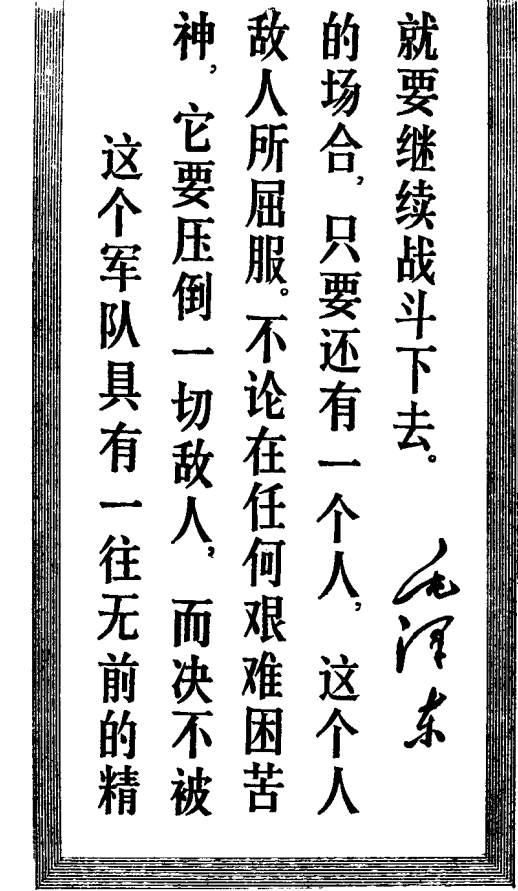 这个军队具有一往无前的精
神，它要压倒一切敌人，而决不被
敌人所屈服。不论在任何艰难困苦
的场合，只要还有一个人，这个人
就要继续战斗下去。
毛泽东